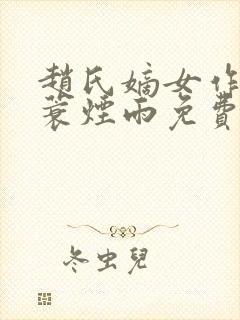 趙氏嫡女作
蓑煙雨免費
冬虫兒